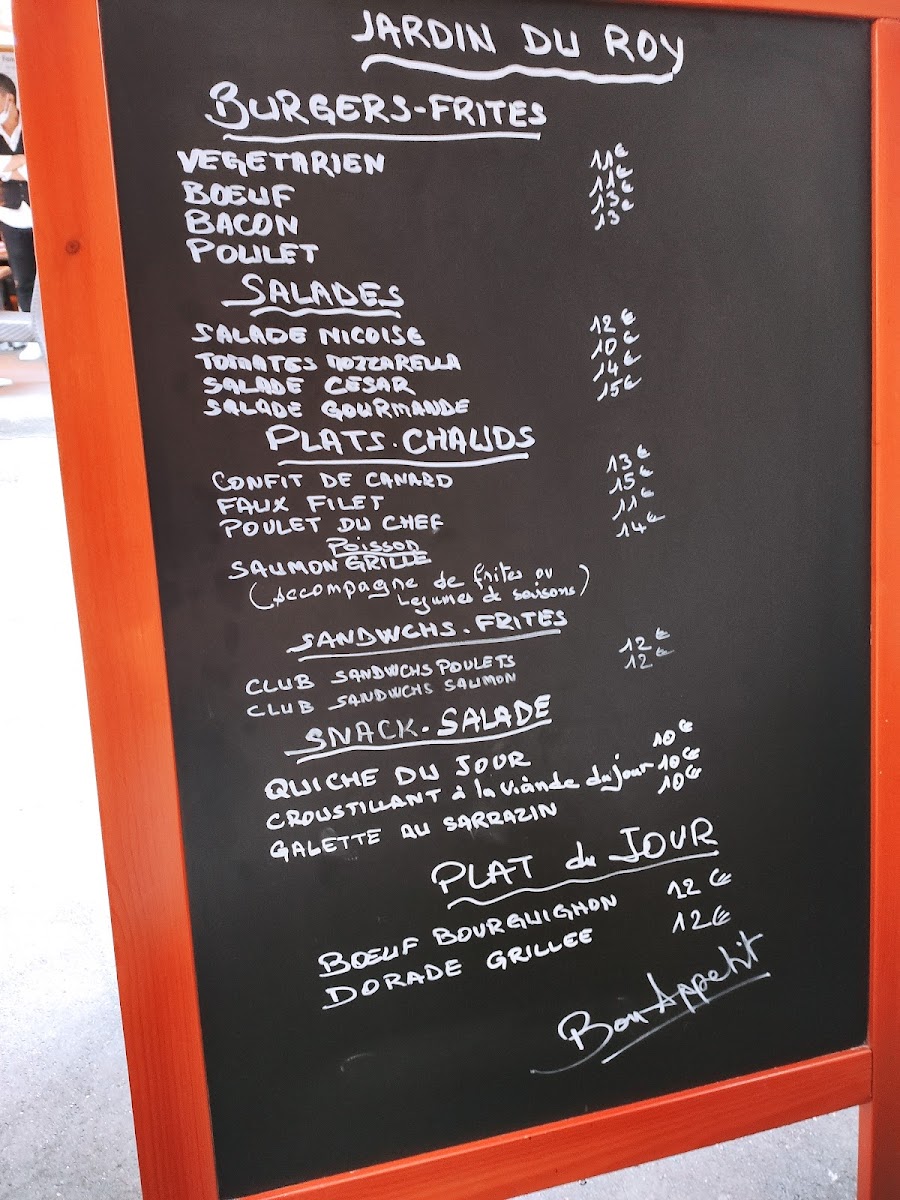 JARDIN DU ROY
BURGERS-FRITES
VEGETARIEN 11€
BŒUF 11€
BACON 13€
POULET 13€
SALADES
SALADE NICOISE 12€
TOMATES MOZZARELLA 10€
SALADE CESAR 14€
SALADE GOURMANDE 15€
PLATS-CHAUDS
CONFIT DE CANARD 13€
FAUX FILET 15€
POULET DU CHEF 11€
Poisson
SAUMON GRILLE 14€
(Accompagne de frites ou
Legumes de saisons)
SANDWCHS-FRITES
CLUB SANDWCHS POULETS 12€
CLUB SANDWCHS SAUMON 12€
SNACK-SALADE
QUICHE DU JOUR 10€
CROUSTILLANT à la viande du jour 10€
GALETTE AU SARRAZIN 10€
PLAT du JOUR
BŒUF BOURGUIGNON 12€
DORADE GRILLEE 12€
Bon Appetit